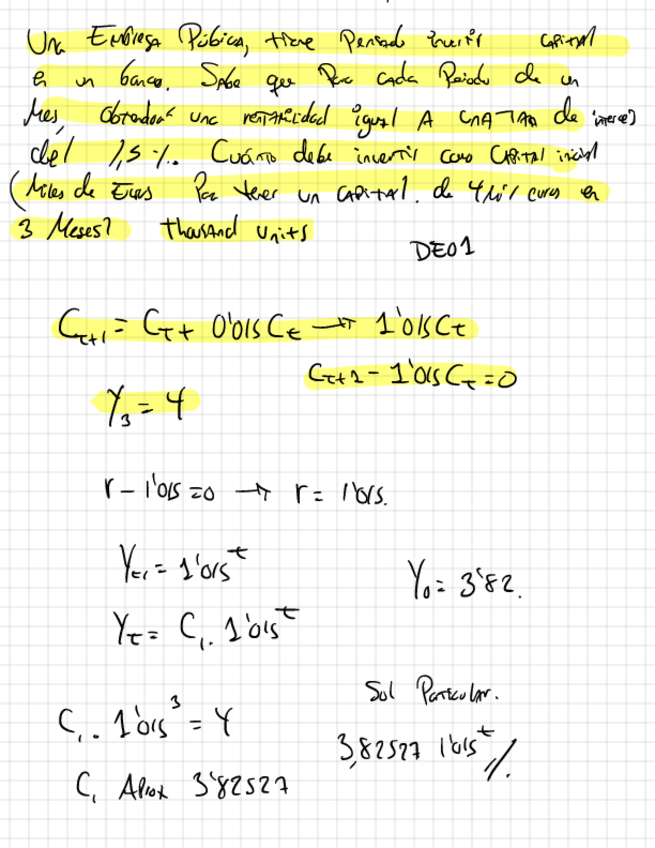 Una Empresa Pública, tiene Pensado invertir capital
en un banco. Sabe que Para cada Periodo de un
Mes, Obtendrá una rentabilidad igual A una tasa de interes
del 1,5 %. Cuánto debe invertir como Capital inicial
(Miles de Euros Para tener un CAPITAL. de 4 Mil euros en
3 Meses? thousand units
DEO1
C_{t+1} = C_t + 0'015 C_t → 1'015 C_t
C_{t+1} - 1'015 C_t = 0
Y_3 = 4
r - 1'015 = 0 → r = 1'015.
Y_{t1} = 1'015^t
Y_0 = 3'82.
Y_t = C_1. 1'015^t
Sol Particular.
C_1. 1'015^3 = 4
3,82527 1'015^t //.
C_1 Aprox 3'82527